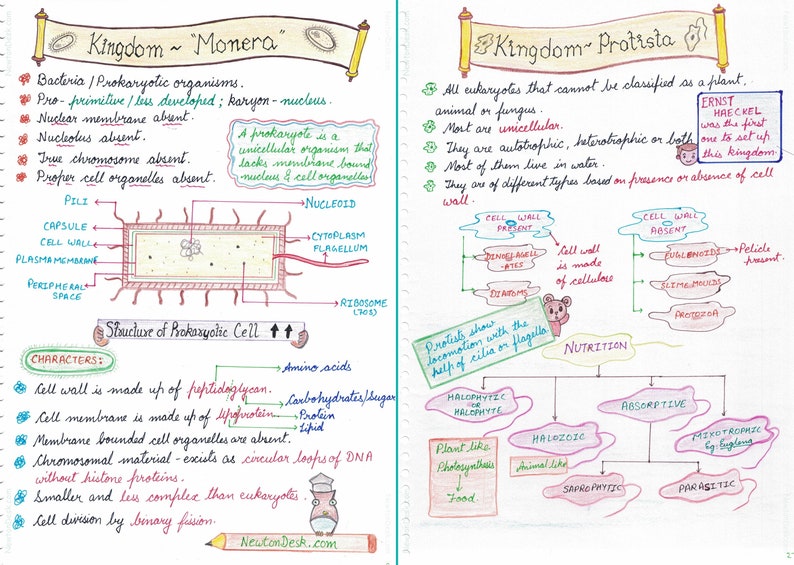 Kingdom ~ "Monera"
Bacteria / Prokaryotic organisms.
Pro- primitive / less developed ; karyon - nucleus.
Nuclear membrane absent.
Nucleolus absent.
True chromosome absent.
Proper cell organelles absent.
A prokaryote is a
unicellular organism that
lacks membrane bound
nucleus & cell organelles
PILI
CAPSULE
CELL WALL
PLASMA MEMBRANE
PERIPHERAL
SPACE
NUCLEOID
CYTOPLASM
FLAGELLUM
RIBOSOME
(70S)
Structure of Prokaryotic Cell
CHARACTERS:
Amino acids
Cell wall is made up of peptidoglycan.
Carbohydrates/Sugar
Cell membrane is made up of lipoprotein.
Protein
Lipid
Membrane bounded cell organelles are absent.
Chromosomal material - excists as circular loops of DNA
without histone proteins.
Smaller and less complex than eukaryotes.
Cell division by binary fission.
NewtonDesk.com
Kingdom~ Protista
All eukaryotes that cannot be classified as a plant,
animal or fungus.
Most are unicellular.
They are autotrophic, heterotrophic or both
Most of them live in water.
They are of different types based on presence or absence of cell
wall.
ERNST
HAECKEL
was the first
one to set up
this kingdom.
CELL WALL
PRESENT
DINOFLAGELL
-ATES
DIATOMS
Cell wall
is made
of cellulose
CELL WALL
ABSENT
EUGLENOIDS
SLIME-MOULDS
PROTOZOA
Pelicle
present.
Protists show
locomotion with the
help of cilia or flagella.
NUTRITION
HALOPHYTIC
OR
HALOPHYTE
HALOZOIC
ABSORPTIVE
MIXOTROPHIC
Eg. Euglena
Plant like
Photosynthesis
Food.
Animal like
SAPROPHYTIC
PARASITIC